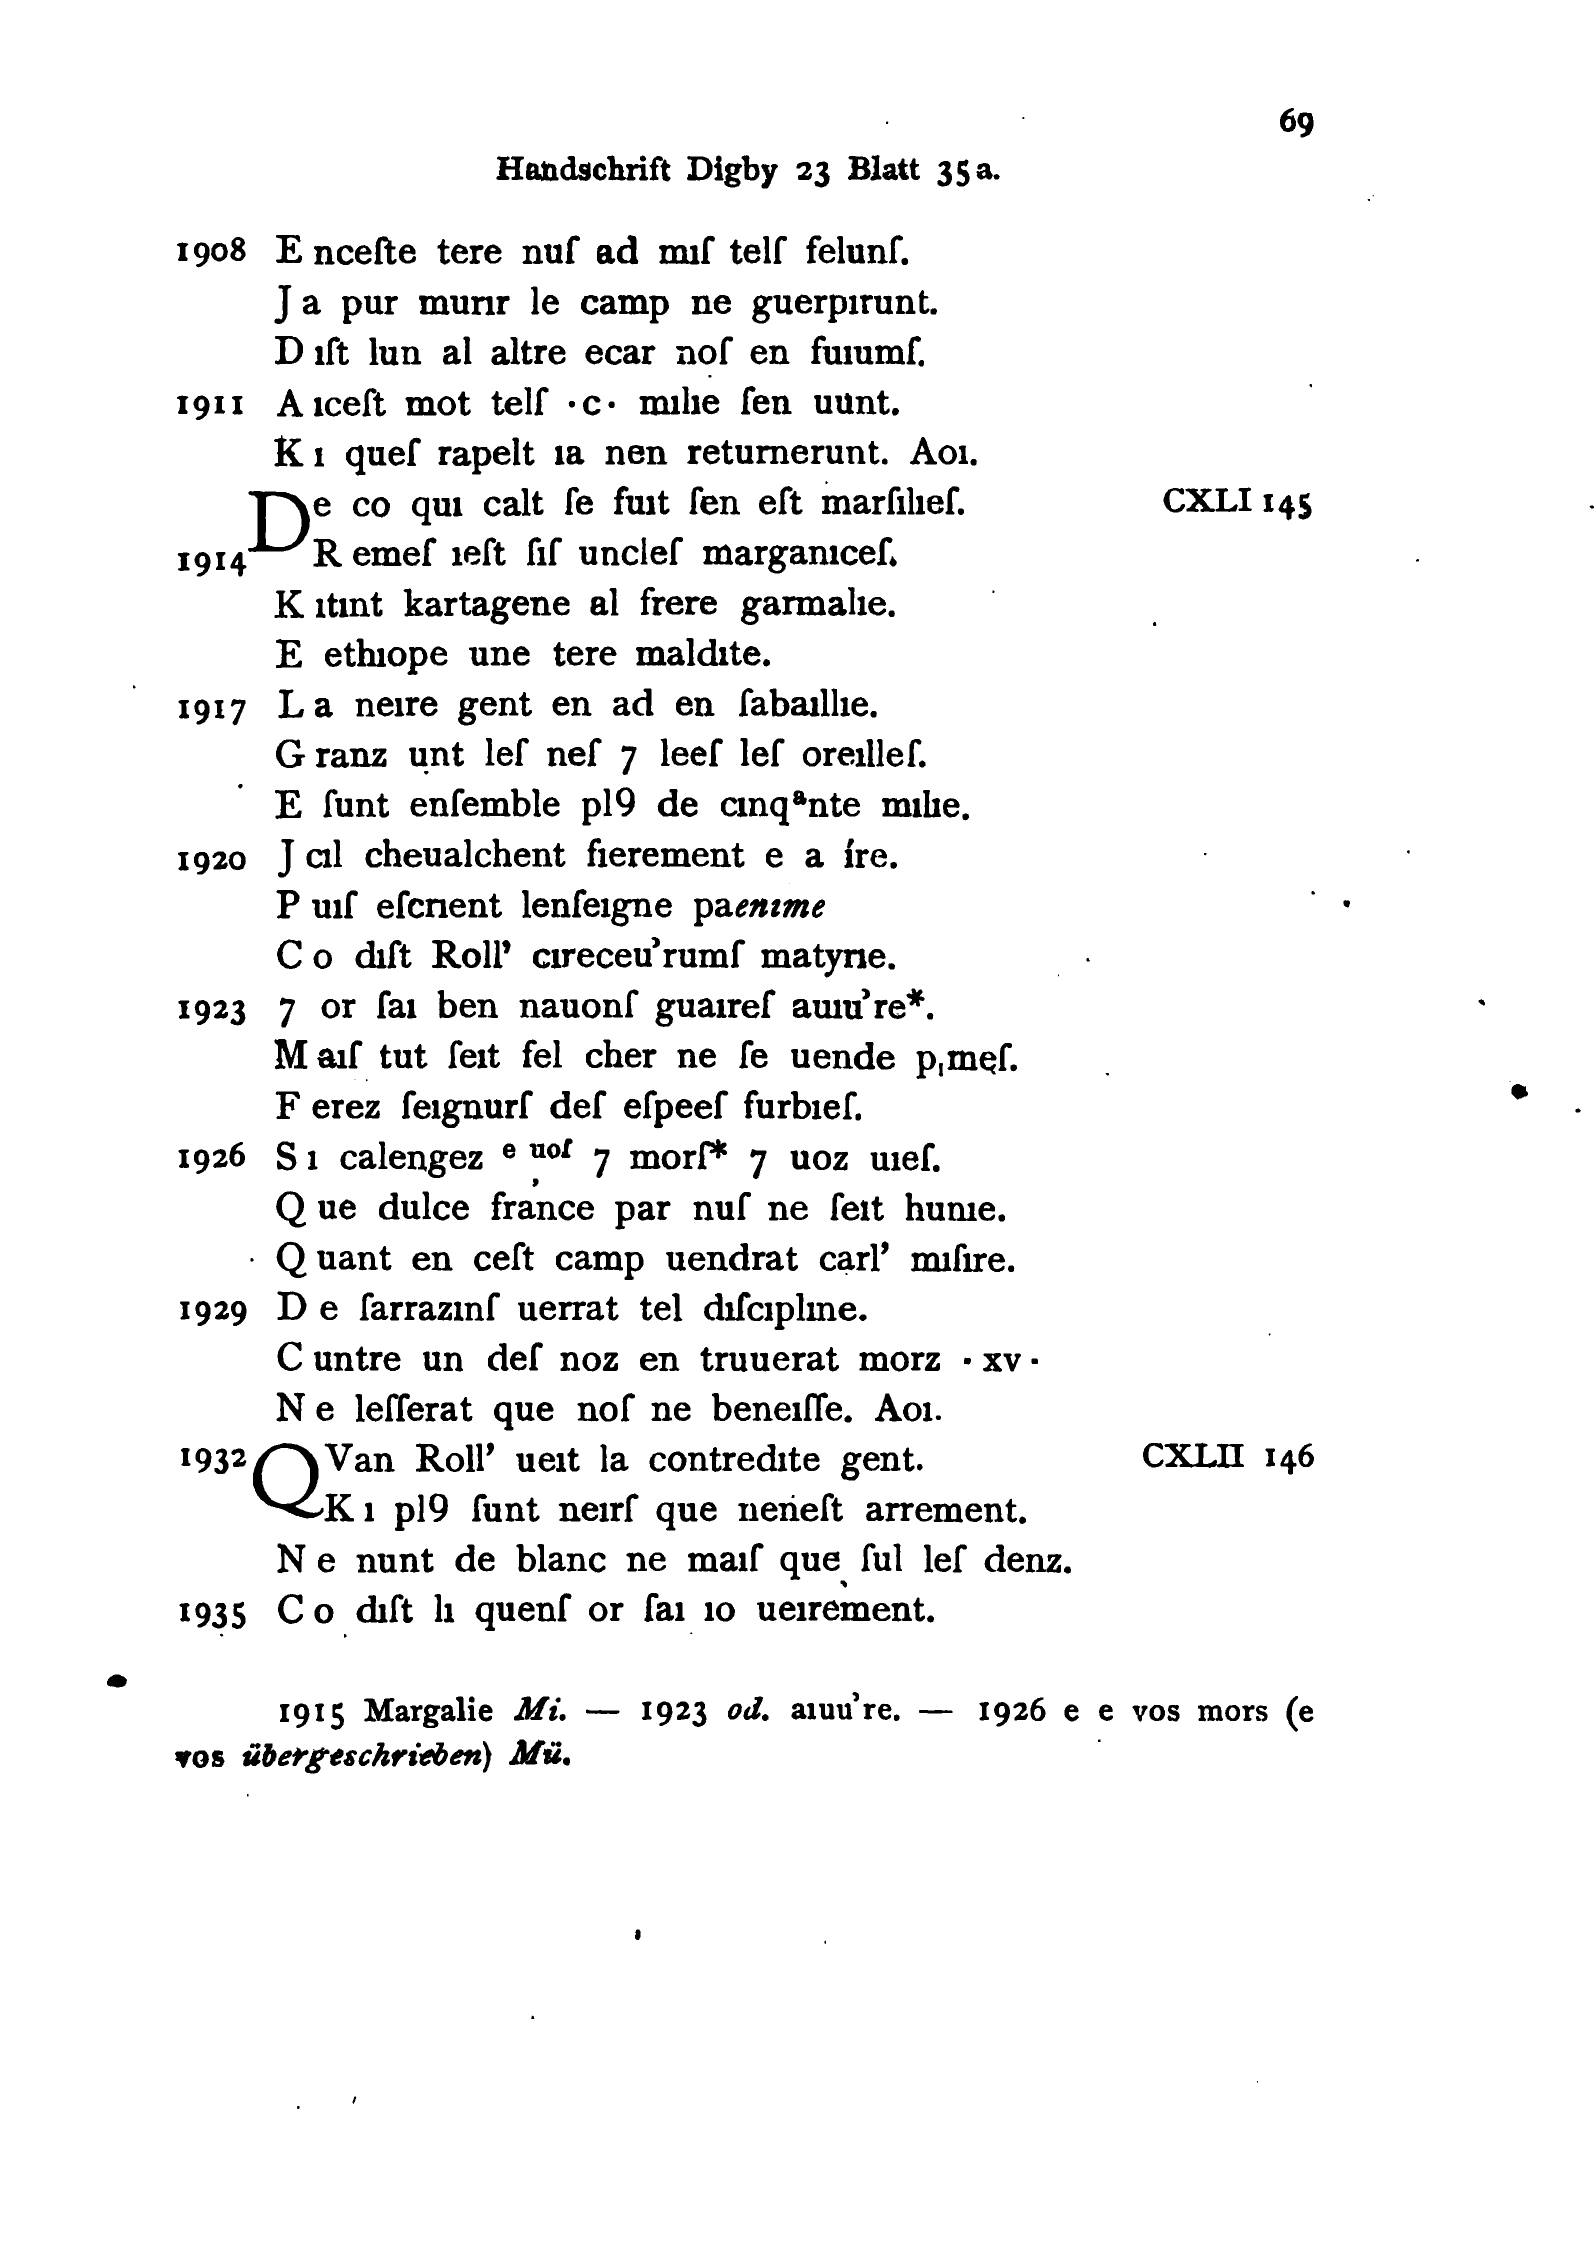 69
Handschrift Digby 23 Blatt 35a.
1908 E nceſte tere nuſ ad mıſ telſ felunſ.
J a pur murır le camp ne guerpırunt.
D ıſt lun al altre ecar noſ en fuıumſ.
1911 A ıceſt mot telſ ·c· mılıe ſen uunt.
K ı queſ rapelt ıa nen returnerunt. Aoı.
De co quı calt ſe fuıt ſen eſt marſılıeſ. CXLI 145
1914 R emeſ ıeſt ſıſ uncleſ marganıceſ.
K ıtınt kartagene al frere garmalıe.
E ethıope une tere maldıte.
1917 L a neıre gent en ad en ſabaıllıe.
G ranz ụnt leſ neſ 7 leeſ leſ oreılleſ.
E ſunt enſemble pl9 de cınqᵃnte mılıe.
1920 J cıl cheualchent fıerement e a íre.
P uıſ eſcrıent lenſeıgne paenıme
C o dıſt Roll’ cıreceu’rumſ matyrıe.
1923 7 or ſaı ben nauonſ guaıreſ auıu’re*.
M aıſ tut ſeıt fel cher ne ſe uende pˌmeſ.
F erez ſeıgnurſ deſ eſpeeſ furbıeſ.
1926 S ı calengez ᵉ ᵘᵒſ 7 morſ* 7 uoz uıeſ.
Q ue dulce france par nuſ ne ſeıt hunıe.
Q uant en ceſt camp uendrat carl’ mıſıre.
1929 D e ſarrazınſ uerrat tel dıſcıplıne.
C untre un deſ noz en truuerat morz ·xv·
N e leſſerat que noſ ne beneıſſe. Aoı.
1932 QVan Roll’ ueıt la contredıte gent. CXLII 146
K ı pl9 ſunt neırſ que neneſt arrement.
N e nunt de blanc ne maıſ que ſul leſ denz.
1935 C o dıſt lı quenſ or ſaı ıo ueırement.
1915 Margalie Mi. — 1923 od. aıuu’re. — 1926 e e vos mors (e
vos übergeschrieben) Mü.